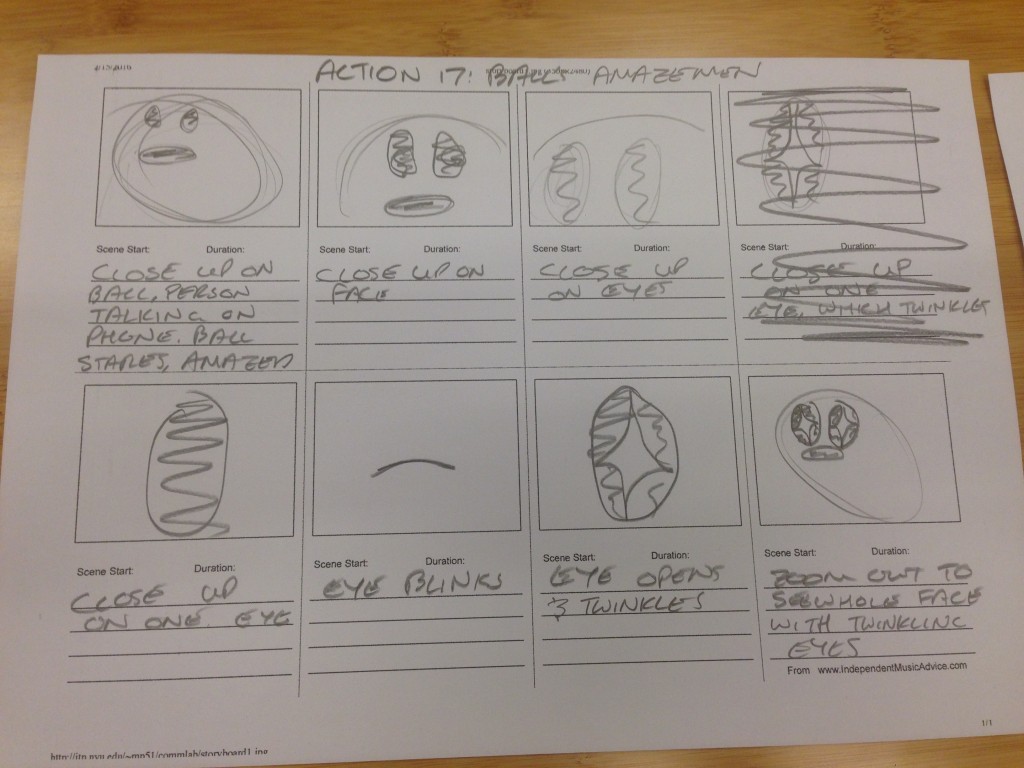 ACTION 17: BALLS AMAZEMEN
Scene Start: Duration:
CLOSE UP ON
BALL, PERSON
TALKING ON
PHONE. BALL
STARES, AMAZED
Scene Start: Duration:
CLOSE UP ON
FACE
Scene Start: Duration:
CLOSE UP
ON EYES
Scene Start: Duration:
CLOSE UP
ON ONE
EYE, WHICH TWINKLES
Scene Start: Duration:
CLOSE UP
ON ONE EYE
Scene Start: Duration:
EYE BLINKS
Scene Start: Duration:
EYE OPENS
& TWINKLES
Scene Start: Duration:
ZOOM OUT TO
SEE WHOLE FACE
WITH TWINKLING
EYES
From www.IndependentMusicAdvice.com
1/1
http://itp.nyu.edu/~mp51/commlab/storyboard1.jpg